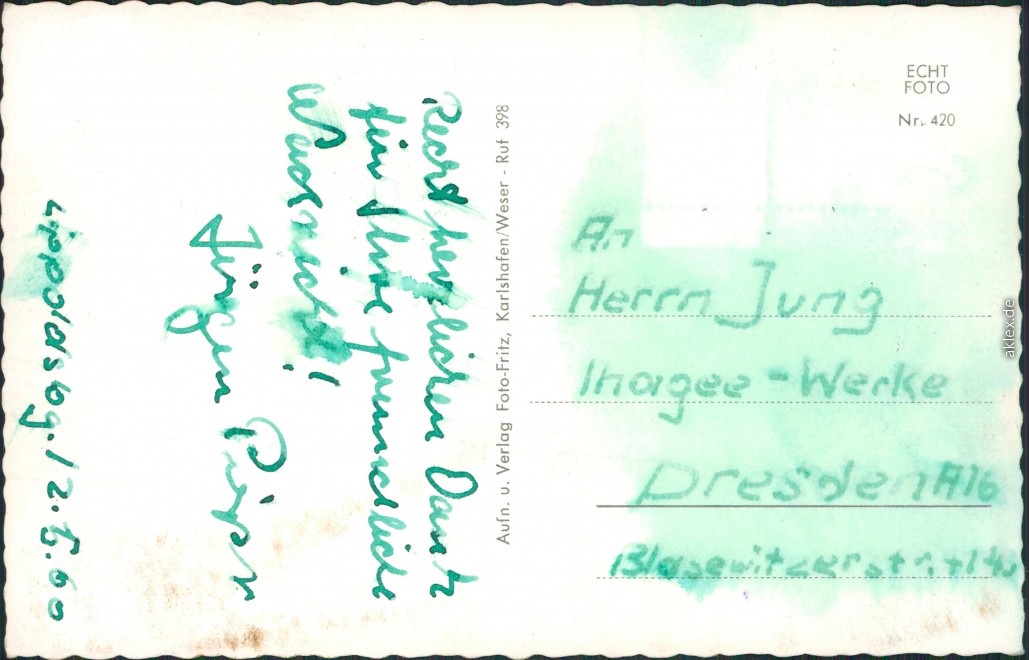 Lippoldsbg. 12.5.60
Recht herzlichen Dank
für Ihre freundliche
Nachricht!
Jürgen
Aufn. u. Verlag Foto-Fritz, Karlshafen/Weser - Ruf 398
ECHT
FOTO
Nr. 420
An
Herrn Jung
Ihagee-Werke
Dresden A16
Blasewitzerstr.
aklex.de